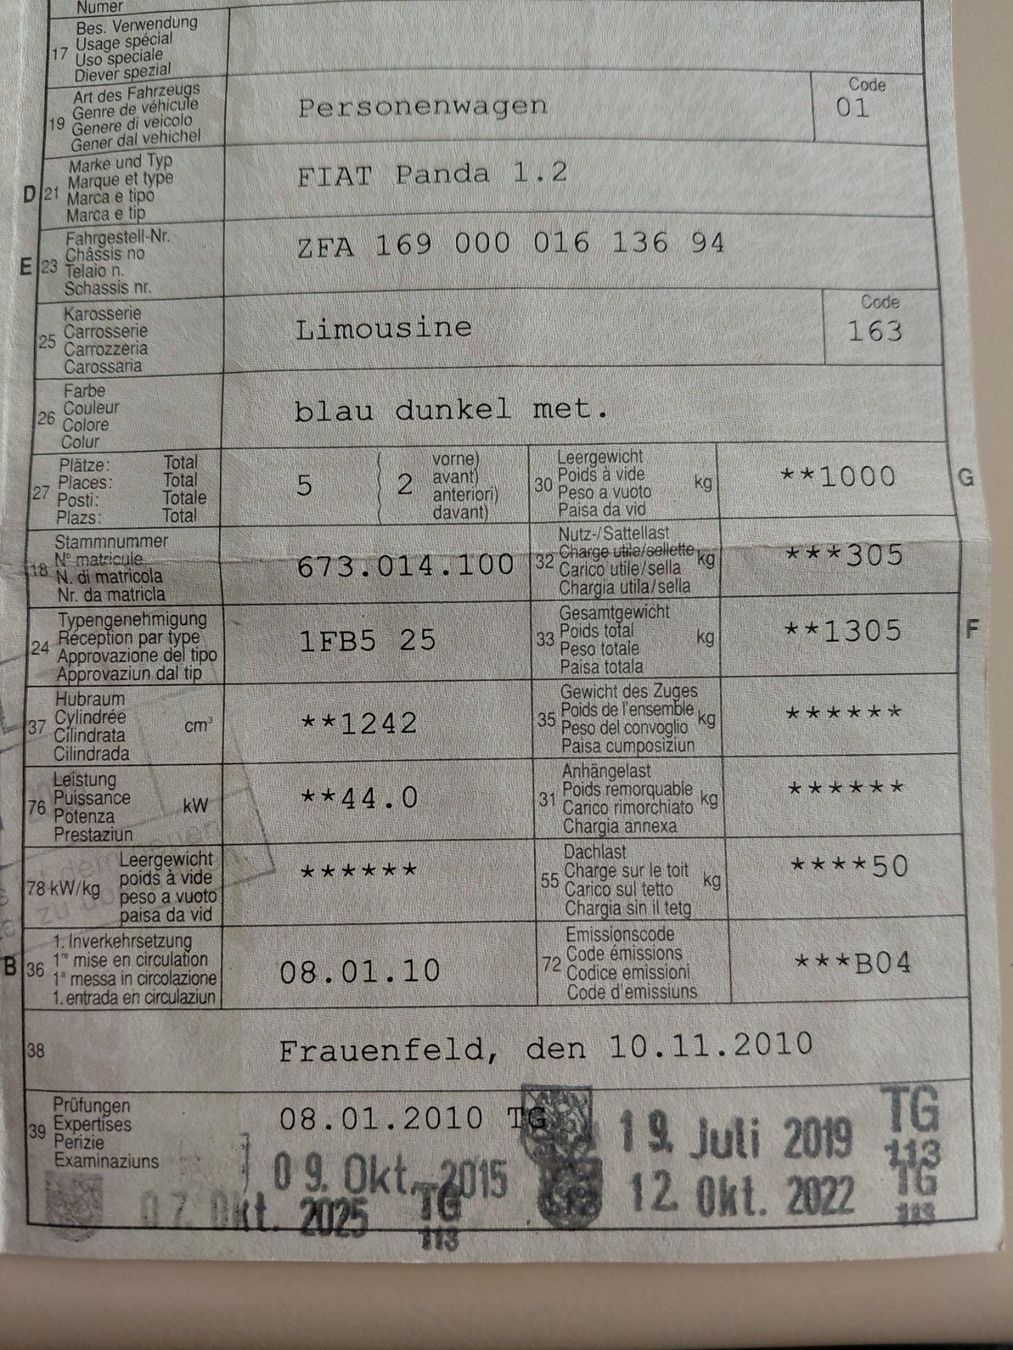 Numer
17 Bes. Verwendung
Usage spécial
Uso speciale
Diever spezial
19 Art des Fahrzeugs
Genre de véhicule
Genere di veicolo
Gener dal vehichel
Personenwagen
Code
01
D 21 Marke und Typ
Marque et type
Marca e tipo
Marca e tip
FIAT Panda 1.2
E 23 Fahrgestell-Nr.
Châssis no
Telaio n.
Schassis nr.
ZFA 169 000 016 136 94
25 Karosserie
Carrosserie
Carrozzeria
Carossaria
Limousine
Code
163
26 Farbe
Couleur
Colore
Colur
blau dunkel met.
27 Plätze: Total
Places: Total
Posti: Totale
Plazs: Total
5 ( 2 vorne)
( avant)
( anteriori)
( davant)
30 Leergewicht
Poids à vide
Peso a vuoto
Paisa da vid
kg
**1000
G
18 Stammnummer
N° matricule
N. di matricola
Nr. da matricla
673.014.100
32 Nutz-/Sattellast
Charge utile/sellette
Carico utile/sella
Chargia utila/sella
kg
***305
24 Typengenehmigung
Réception par type
Approvazione del tipo
Approvaziun dal tip
1FB5 25
33 Gesamtgewicht
Poids total
Peso totale
Paisa totala
kg
**1305
F
37 Hubraum
Cylindrée
Cilindrata
Cilindrada
cm³
**1242
35 Gewicht des Zuges
Poids de l'ensemble
Peso del convoglio
Paisa cumposiziun
kg
******
76 Leistung
Puissance
Potenza
Prestaziun
kW
**44.0
31 Anhängelast
Poids remorquable
Carico rimorchiato
Chargia annexa
kg
******
78 kW/kg Leergewicht
poids à vide
peso a vuoto
paisa da vid
******
55 Dachlast
Charge sur le toit
Carico sul tetto
Chargia sin il tetg
kg
****50
B 36 1. Inverkehrsetzung
1re mise en circulation
1a messa in circolazione
1. entrada en circulaziun
08.01.10
72 Emissionscode
Code émissions
Codice emissioni
Code d'emissiuns
***B04
38 Frauenfeld, den 10.11.2010
39 Prüfungen
Expertises
Perizie
Examinaziuns
08.01.2010 TG
19. Juli 2019 TG
113
09. Okt. 2015
12. Okt. 2022 TG
113
07. Okt. 2025 TG
113